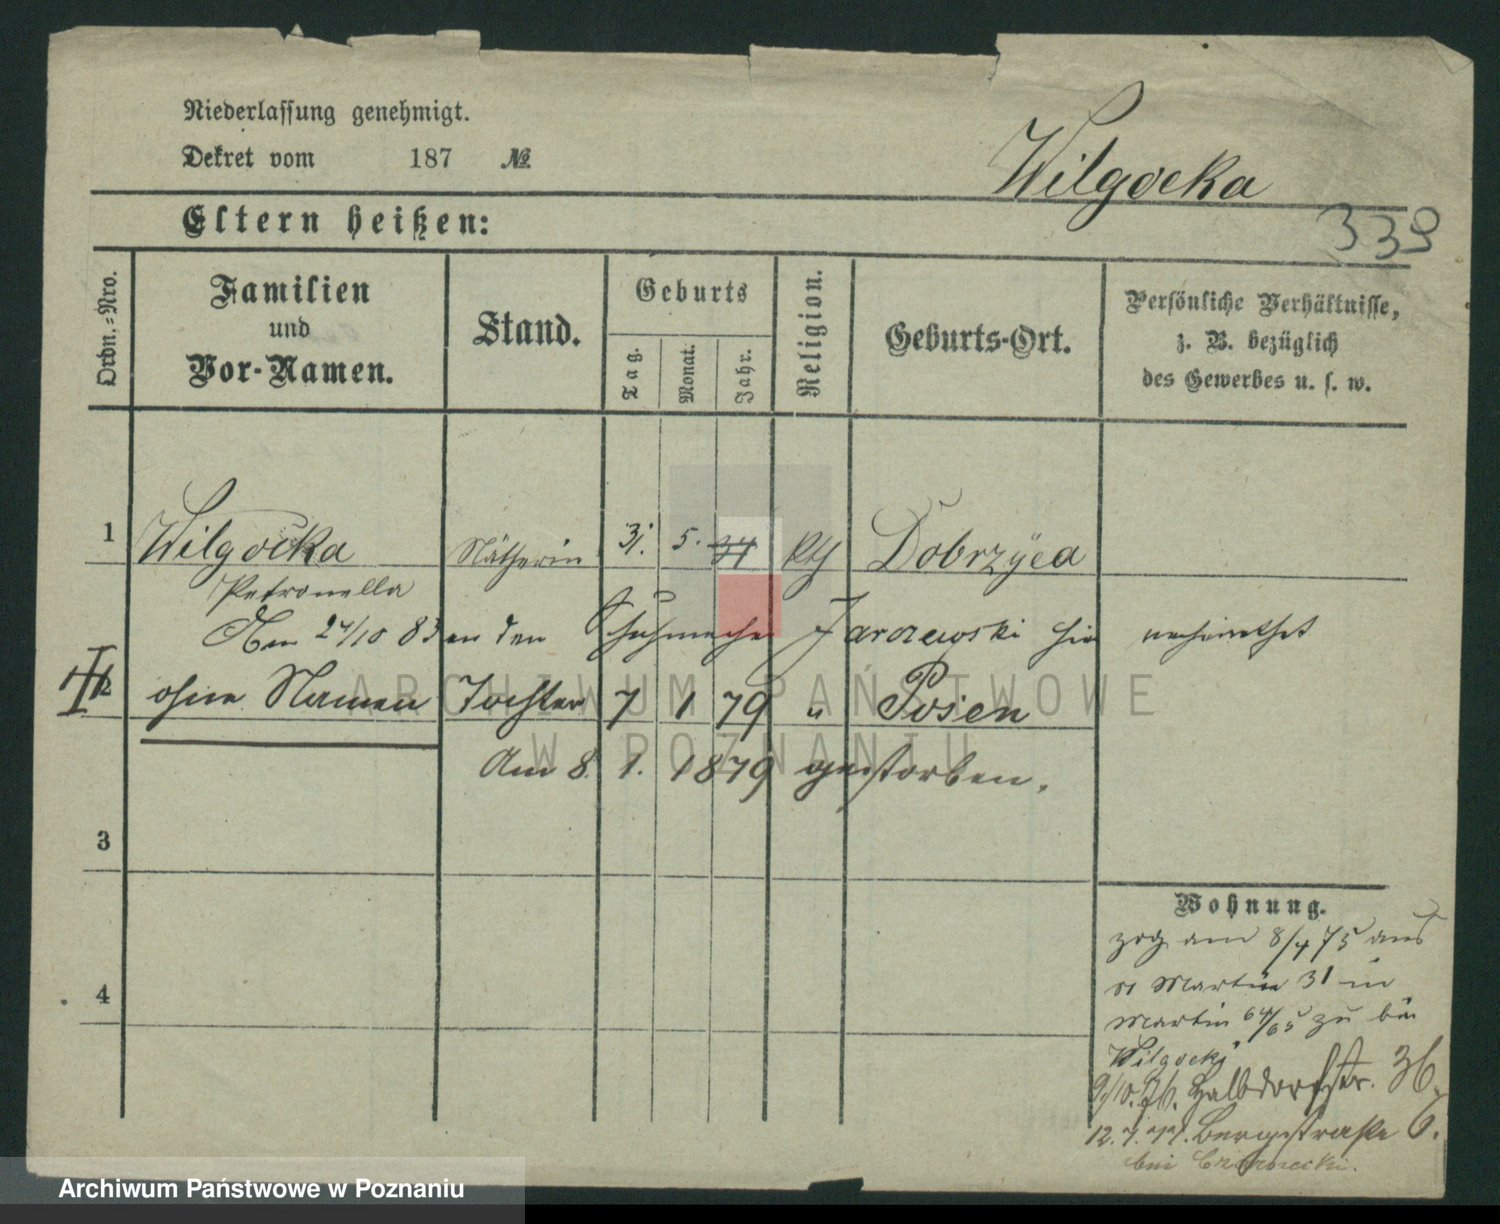 Niederlassung genehmigt.
Dekret vom 187 №
Wilgocka
Eltern heißen:
339
Ordn.-Nro.
Familien und Vor-Namen.
Stand.
Geburts
Tag.
Monat.
Jahr.
Religion.
Geburts-Ort.
Persönliche Verhältnisse,
z. B. bezüglich
des Gewerbes u. s. w.
1 Wilgocka Nätherin 31. 5. kth Dobrzyca
Petronella
Am 27/10 83 an den Schuhmacher Jarozewski hier verheirathet
2 ohne Namen Tochter 7 1 79 " Posen
Am 8. 1. 1879 gestorben.
3
4
Wohnung.
zog am 8/4 75 aus
St Martin 31 in
Martin 64/65 zu bei
Wilgocki
9/10. 76. Halbdorfstr. 36.
12. 4. 77. Bergstraße 6.
bei
ARCHIWUM PAŃSTWOWE
W POZNANIU
Archiwum Państwowe w Poznaniu